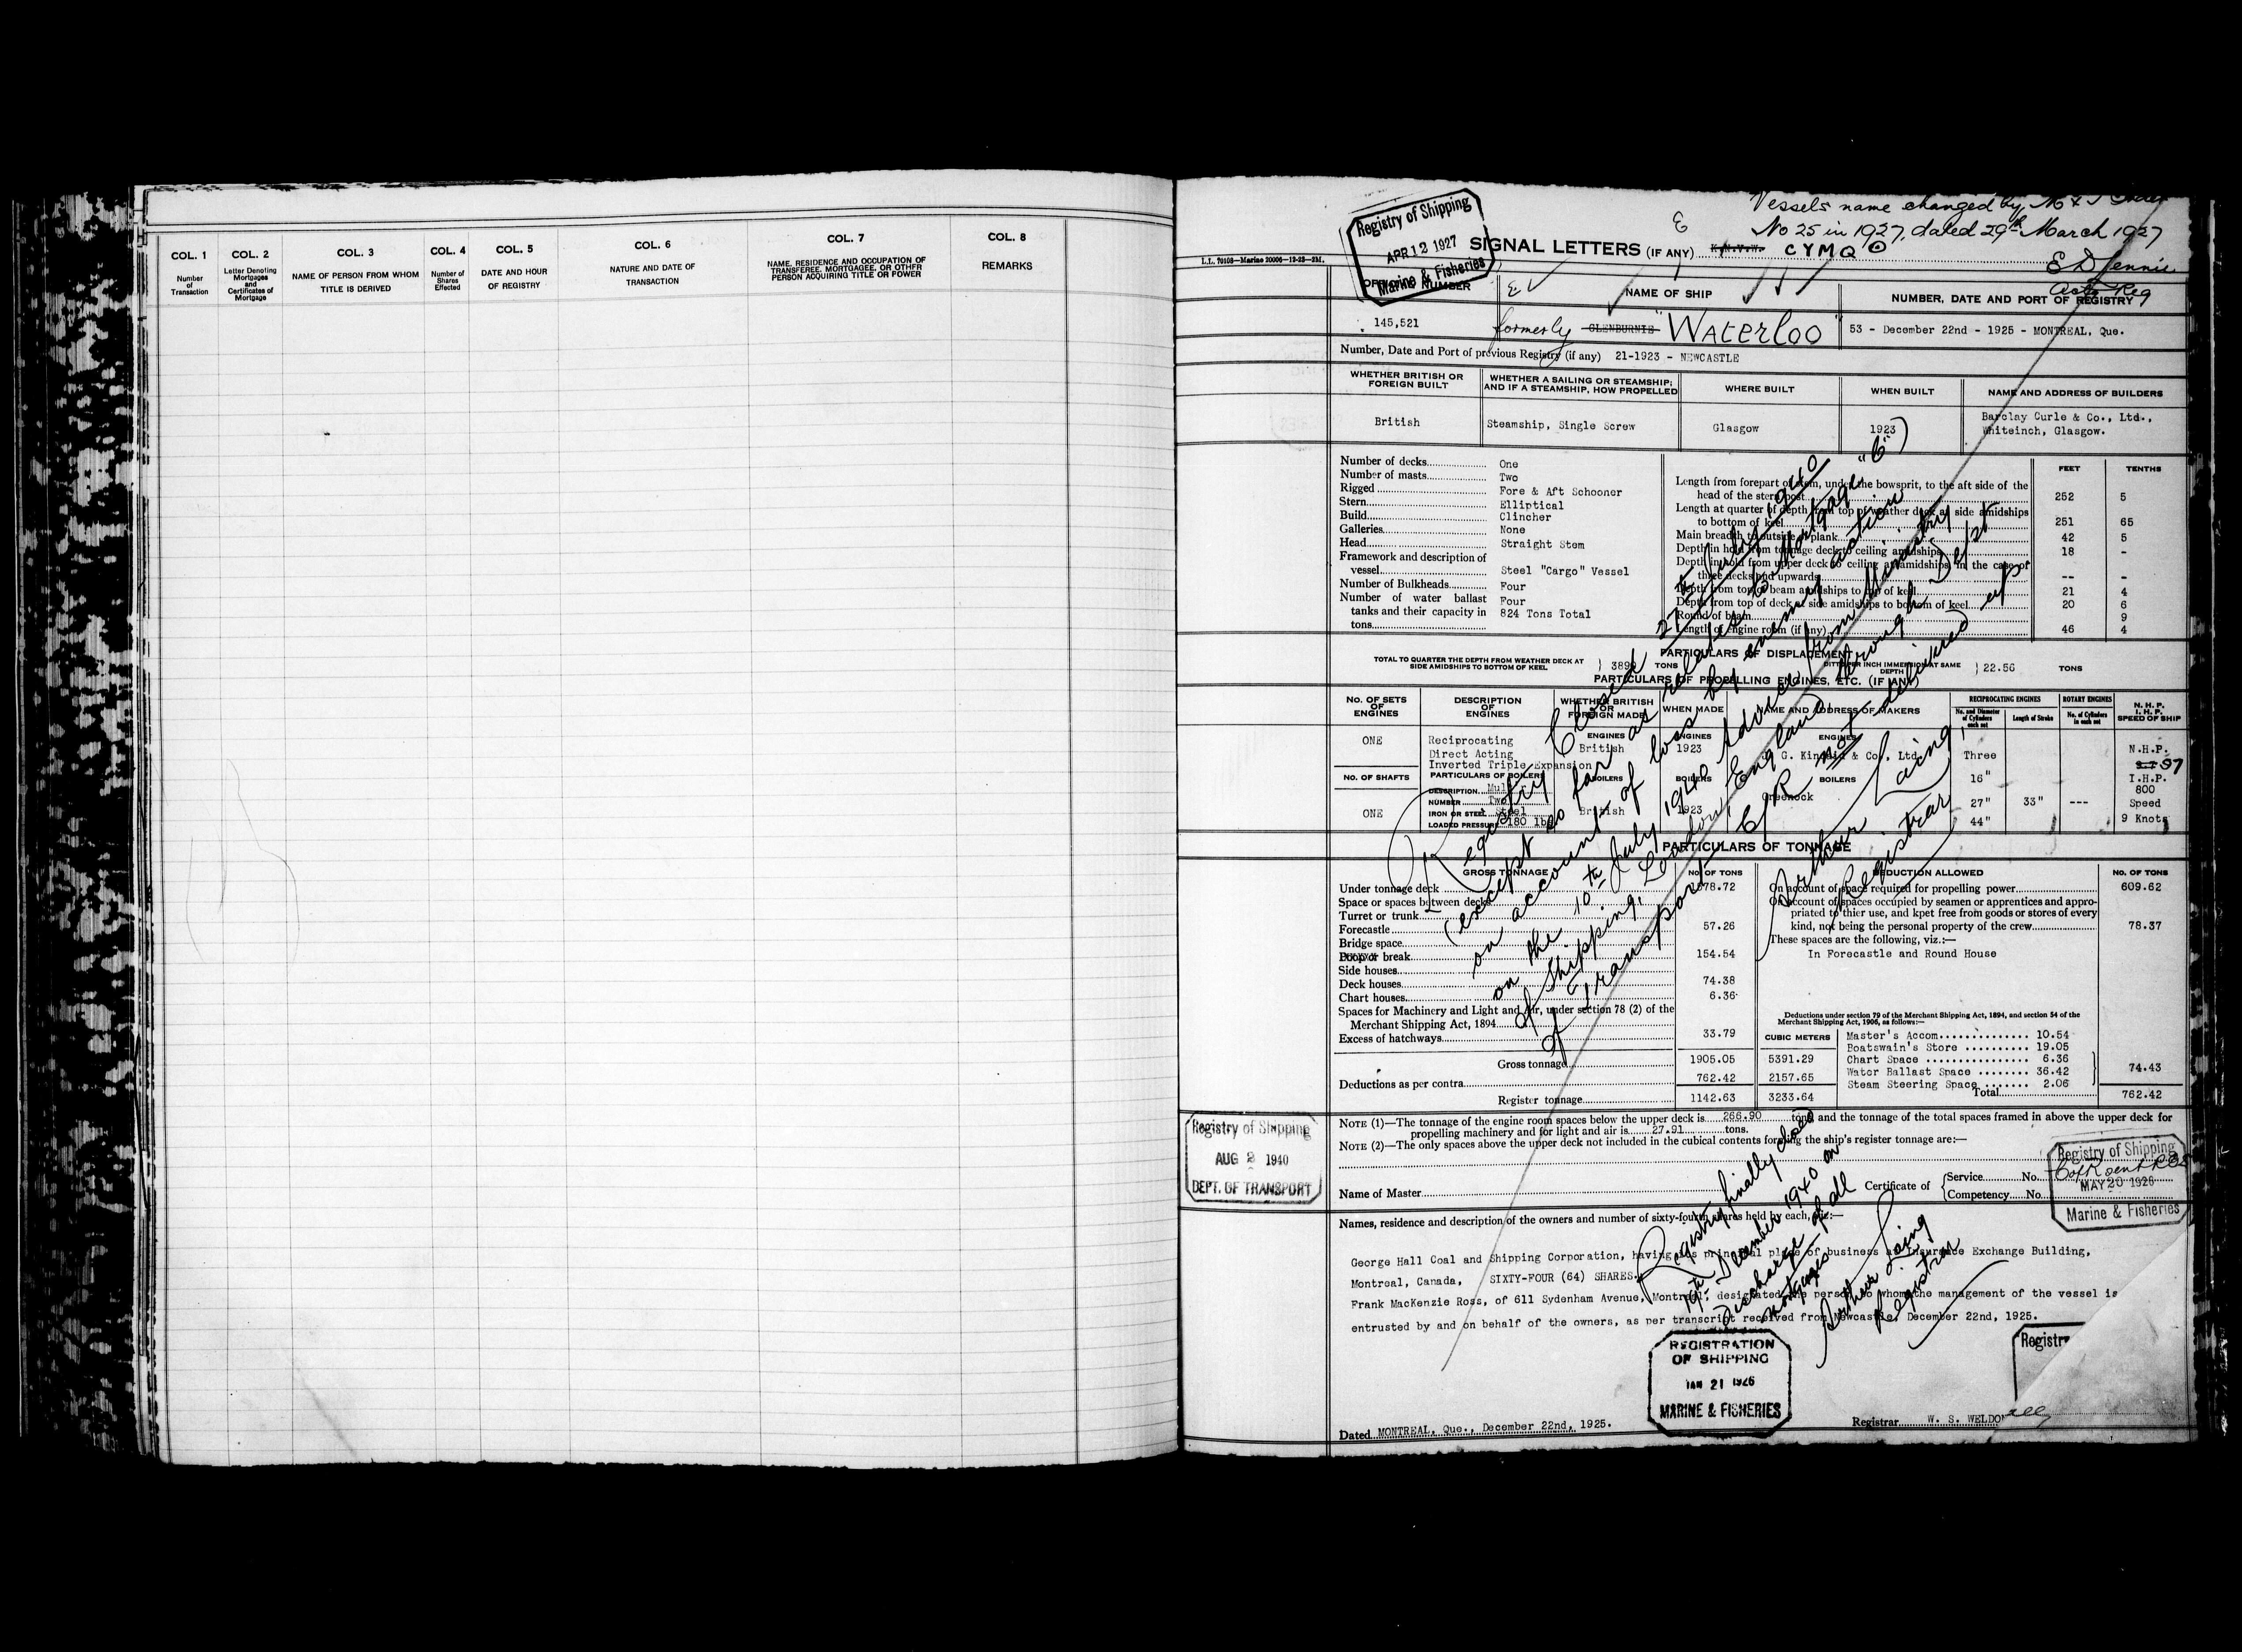 COL. 1
Number
of
Transaction
COL. 2
Letter Denoting
Mortgages
and
Certificates of
Mortgage
COL. 3
NAME OF PERSON FROM WHOM
TITLE IS DERIVED
COL. 4
Number of
Shares
Effected
COL. 5
DATE AND HOUR
OF REGISTRY
COL. 6
NATURE AND DATE OF
TRANSACTION
COL. 7
NAME, RESIDENCE AND OCCUPATION OF
TRANSFEREE, MORTGAGEE, OR OTHER
PERSON ACQUIRING TITLE OR POWER
COL. 8
REMARKS
Vessels name changed by M & F
No 25 in 1927, dated 29th March 1927
Registry of Shipping
APR 12 1927
Marine & Fisheries
SIGNAL LETTERS (IF ANY) K.N.V.W. CYMQ
NUMBER
NAME OF SHIP
NUMBER, DATE AND PORT OF REGISTRY
145,521
formerly GLENBURNIE "Waterloo"
53 - December 22nd - 1925 - MONTREAL, Que.
Number, Date and Port of previous Registry (if any) 21-1923 - NEWCASTLE
WHETHER BRITISH OR
FOREIGN BUILT
WHETHER A SAILING OR STEAMSHIP;
AND IF A STEAMSHIP, HOW PROPELLED
WHERE BUILT
WHEN BUILT
NAME AND ADDRESS OF BUILDERS
British
Steamship, Single Screw
Glasgow
1923
Barclay Curle & Co., Ltd.,
Whiteinch, Glasgow.
Number of decks One
Number of masts Two
Rigged Fore & Aft Schooner
Stern Elliptical
Build Clincher
Galleries None
Head Straight Stem
Framework and description of
vessel Steel "Cargo" Vessel
Number of Bulkheads Four
Number of water ballast Four
tanks and their capacity in 824 Tons Total
tons
FEET TENTHS
Length from forepart of stem, under the bowsprit, to the aft side of the
head of the stern post 252 5
Length at quarter of depth from top of weather deck at side amidships
to bottom of keel 251 65
Main breadth to outside of plank 42 5
Depth in hold from tonnage deck to ceiling amidships 18 -
Depth in hold from upper deck to ceiling at amidships, in the case of
three decks and upwards -- -
Depth from top of beam amidships to top of keel 21 4
Depth from top of deck at side amidships to bottom of keel 20 6
Round of beam 9
Length of engine room (if any) 46 4
PARTICULARS OF DISPLACEMENT
TOTAL TO QUARTER THE DEPTH FROM WEATHER DECK AT
SIDE AMIDSHIPS TO BOTTOM OF KEEL
TONS
DITTO PER INCH IMMERSION AT SAME
DEPTH
22.56 TONS
PARTICULARS OF PROPELLING ENGINES, ETC. (IF ANY)
NO. OF SETS
OF
ENGINES
DESCRIPTION
OF
ENGINES
WHETHER BRITISH
OR
FOREIGN MADE
WHEN MADE
NAME AND ADDRESS OF MAKERS
RECIPROCATING ENGINES
No. and Diameter
of Cylinders
each set
Length of Stroke
ROTARY ENGINES
No. of Cylinders
in each set
N. H. P.
I. H. P.
SPEED OF SHIP
ONE
Reciprocating
Direct Acting
Inverted Triple Expansion
ENGINES
British
ENGINES
1923
ENGINES
G. Kincaid & Co., Ltd.
Three
N.H.P.
97
NO. OF SHAFTS
PARTICULARS OF BOILERS
BOILERS
BOILERS
BOILERS
16"
I.H.P.
800
ONE
DESCRIPTION
NUMBER Two
IRON OR STEEL Steel
LOADED PRESSURE 180 lbs
British
1923
Greenock
27" 33" ---
Speed
44"
9 Knots
PARTICULARS OF TONNAGE
GROSS TONNAGE
NO. OF TONS
DEDUCTION ALLOWED
NO. OF TONS
Under tonnage deck 1578.72
Space or spaces between decks
Turret or trunk
Forecastle 57.26
Bridge space
Poop or break 154.54
Side houses
Deck houses 74.38
Chart houses 6.36
Spaces for Machinery and Light and Air, under section 78 (2) of the
Merchant Shipping Act, 1894
Excess of hatchways 33.79
CUBIC METERS
Gross tonnage 1905.05 5391.29
Deductions as per contra 762.42 2157.65
Register tonnage 1142.63 3233.64
On account of space required for propelling power 609.62
On account of spaces occupied by seamen or apprentices and appro-
priated to thier use, and kpet free from goods or stores of every
kind, not being the personal property of the crew 78.37
These spaces are the following, viz.:—
In Forecastle and Round House
Deductions under section 79 of the Merchant Shipping Act, 1894, and section 54 of the
Merchant Shipping Act, 1906, as follows:—
Master's Accom 10.54
Boatswain's Store 19.05
Chart Space 6.36
Water Ballast Space 36.42
Steam Steering Space 2.06
74.43
Total 762.42
Registry Closed 27th July 1940
(except so far as relates to Mortgage "6")
on account of loss by enemy action
on the 10th July 1940 Advice from Ministry
of Shipping, London, England through Dept
of Transport C/R not delivered up
Arthur Laing,
Registrar
NOTE (1)—The tonnage of the engine room spaces below the upper deck is 266.90 tons and the tonnage of the total spaces framed in above the upper deck for
propelling machinery and for light and air is 27.91 tons.
NOTE (2)—The only spaces above the upper deck not included in the cubical contents forming the ship's register tonnage are:—
Registry of Shipping
AUG 2 1940
DEPT. OF TRANSPORT
Name of Master
Certificate of
Service No.
Competency No.
Registry of Shipping
MAY 20 1926
Marine & Fisheries
Names, residence and description of the owners and number of sixty-fourth shares held by each, viz:—
George Hall Coal and Shipping Corporation, having its principal place of business at Insurance Exchange Building,
Montreal, Canada, SIXTY-FOUR (64) SHARES.
Frank MacKenzie Ross, of 611 Sydenham Avenue, Montreal, designated the person to whom the management of the vessel is
entrusted by and on behalf of the owners, as per transcript received from Newcastle, December 22nd, 1925.
Registry finally closed
December 1940 on
discharge of all
mortgages
Arthur Laing
Registrar
REGISTRATION
OF SHIPPING
JAN 21 1926
MARINE & FISHERIES
Registr
Dated MONTREAL, Que., December 22nd, 1925.
Registrar W. S. WELDO